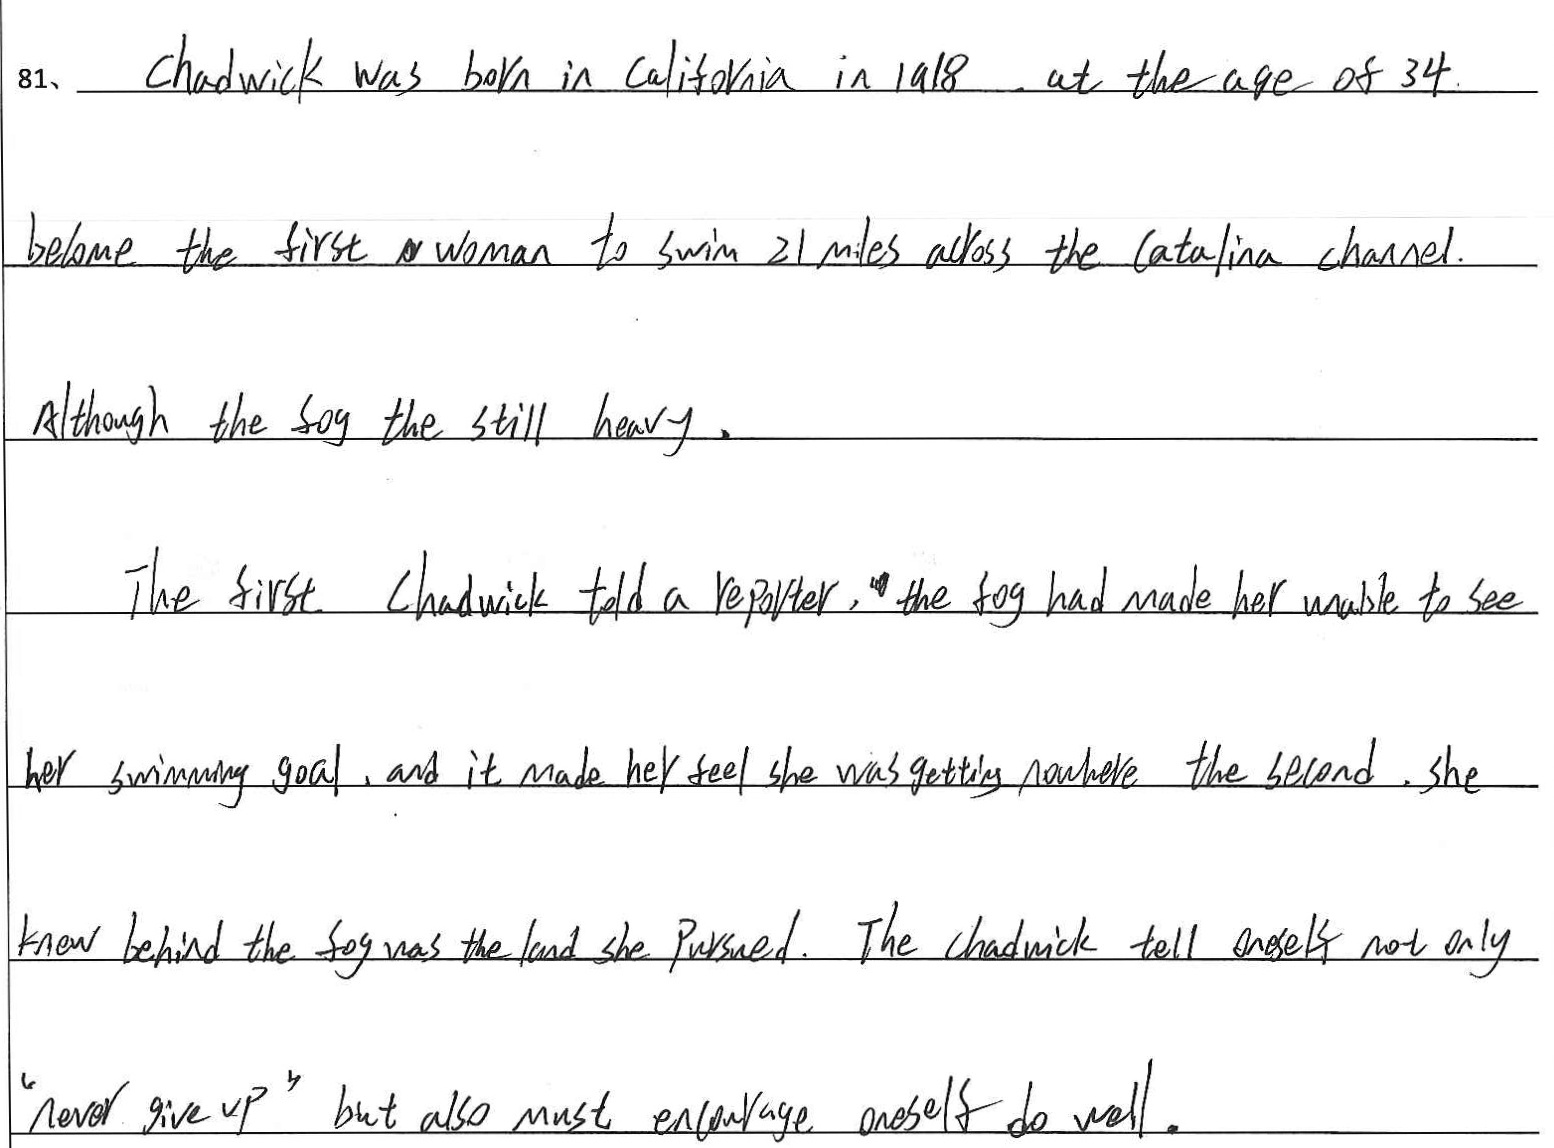 81、 Chadwick was born in California in 1918. at the age of 34.
become the first woman to swim 21 miles across the Catalina channel.
Although the fog the still heavy.
The first Chadwick told a reporter, "the fog had made her unable to see
her swimming goal, and it made her feel she was getting nowhere the second, she
know behind the fog was the land she pursued. The chadwick tell oneself not only
"never give up" but also must encourage oneself do well.